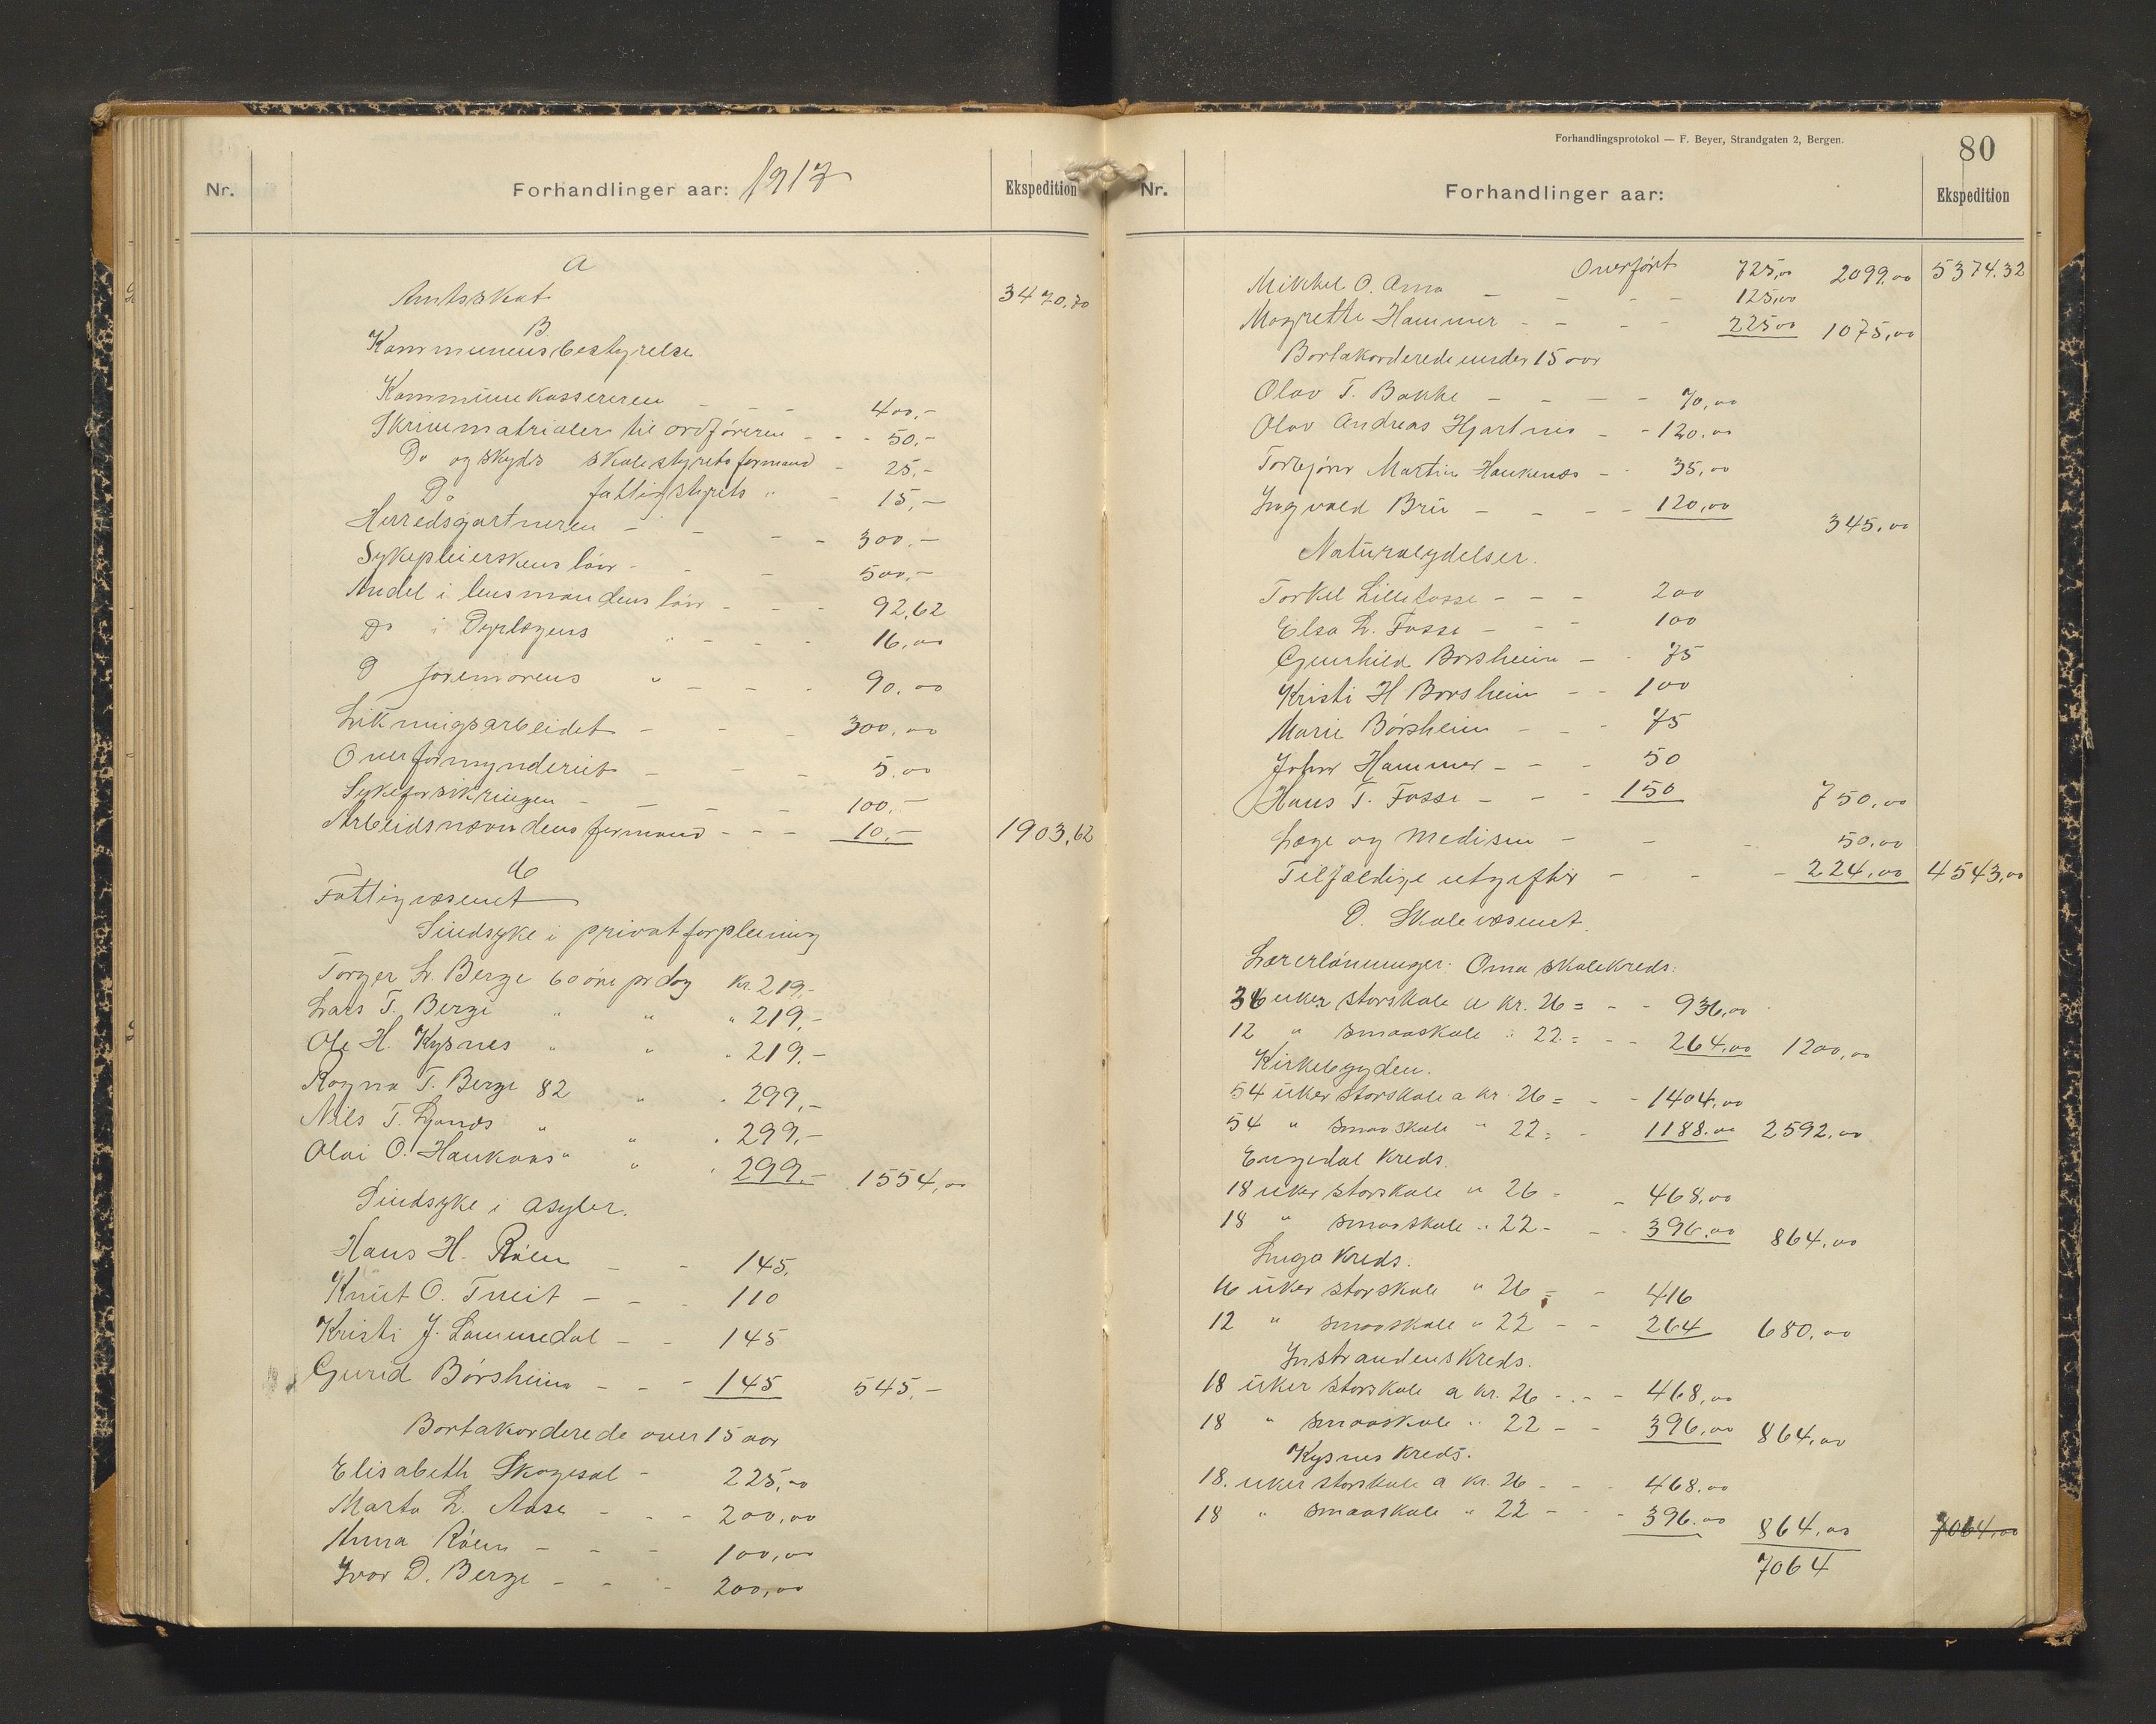 Nr.
Forhandlinger aar: 1917
Ekspedition
A
Amtsskat 3470,70
B
Kommunensbestyrelse
Kommunekassereren - - - 400,-
Skrivematrialer til ordføreren - - - 50,-
Do og skyds skolestyrets formand - 25,-
Do fattigstyrets " - 15,-
Herredsgartneren - - - - 300,-
Sykepleierskens løn - - - 500,-
Andel i lensmandens løn - - - 92,62
Do i Dyrlægens " - - - 16,00
D joremorens " - - - 90,00
Likningsarbeidet - - - 300,00
Overformynderiet - - - 5,00
Sykeforsikringen - - - - 100,-
Arbeidsnævndens formand - - - 10,- 1903,62
C
Fattigvæsenet
Sindsyke i privat forpleining
Torger L. Berge 60 øre pr dag kr. 219,-
Lars T. Berge " " " 219,-
Ole H. Kysnes " " " 219,-
Ragna T. Berge 82 " " 299,-
Nils T. Lyanes " " 299,-
Olai O. Haukaas " " " 299,- 1554,00
Sindsyke i asyler.
Hans H. Røen - - 145,
Knut O. Tveit - - - 110
Kristi J. Lammedal - - 145
Gurid Børsheim - - - 145 545,-
Bortakorderede over 15 aar
Elisabeth Skogesal - 225,00
Marta L. Aase - - - 200,00
Anna Røen - - - 100,00
Ivar D. Berge - - - 200,00
Forhandlingsprotokol — F. Beyer, Strandgaten 2, Bergen.
80
Nr.
Forhandlinger aar:
Ekspedition
Overført 725,00 2099,00 5374.32
Mikkel O. Oma - - - - 125,00
Magrethe Hammer - - - - 225,00 1075,00
Bortakorderede under 15 aar
Olav T. Bakke - - - - 70,00
Olav Andreas Hjartnes - - 120,00
Torbjørn Martin Haukenes - - 35,00
Ingvald Bru - - - - 120,00 345,00
Naturalydelser.
Torkel Lillefosse - - - 200
Elsa L. Fosse - - - 100
Gunhild Borsheim - - 75
Kristi H Borsheim - - 100
Marie Børsheim - - - 75
Johan Hammer - - - 50
Hans T. Fosse - - - 150 750,00
Læge og Medisin - - - 50,00
Tilfældige utgifter - - - 224,00 4543,00
D. Skolevæsenet.
Lærerlønninger. Oma skolekreds:
36 uker storskole a kr. 26 = - - 936,00
12 " smaaskole " 22 = - - 264,00 1200,00
Kirkebygden.
54 uker storskole a kr. 26 = - - 1404,00
54 " smaaskole " 22 = - 1188,00 2592,00
Engedal Kreds.
18 uker storskole " 26 = - 468,00
18 " smaaskole " 22 - - - 396,00 864,00
Linga Kreds.
16 uker storskole " 26 = - 416
12 " smaaskole " 22 - - 264 680,00
Instrandens Kreds.
18 uker storskole a kr. 26 - - - 468,00
18 " smaaskole " 22 - - 396,00 864,00
Kysnes Kreds.
18. uker storskole a kr. 26 - - - 468,00
18 " smaaskole " 22 - - - 396,00 864,00 7064,00
7064